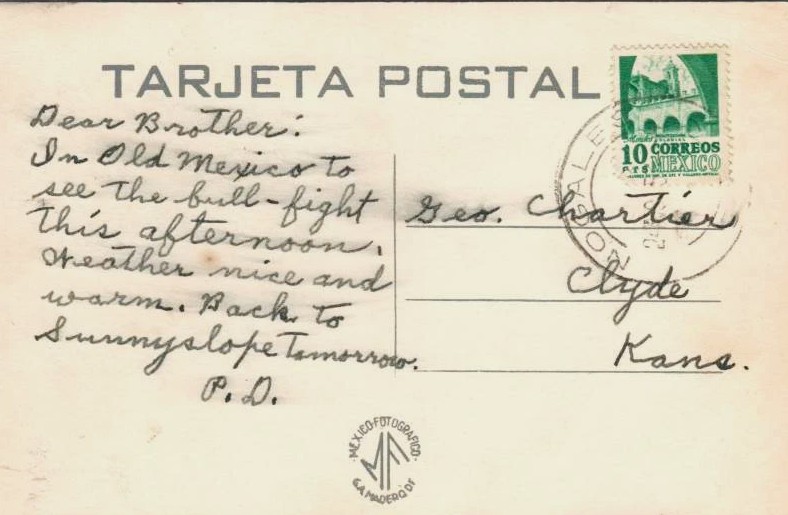 TARJETA POSTAL
Dear Brother:
In Old Mexico to
see the bull-fight
this afternoon.
Weather nice and
warm. Back to
Sunnyslope Tomorrow.
P.D.
10 CORREOS
CTS MEXICO
NOGALES
Geo. Chartier
Clyde
Kans.
MEXICO-FOTOGRAFICO
MF
G.A. MADERO, DF